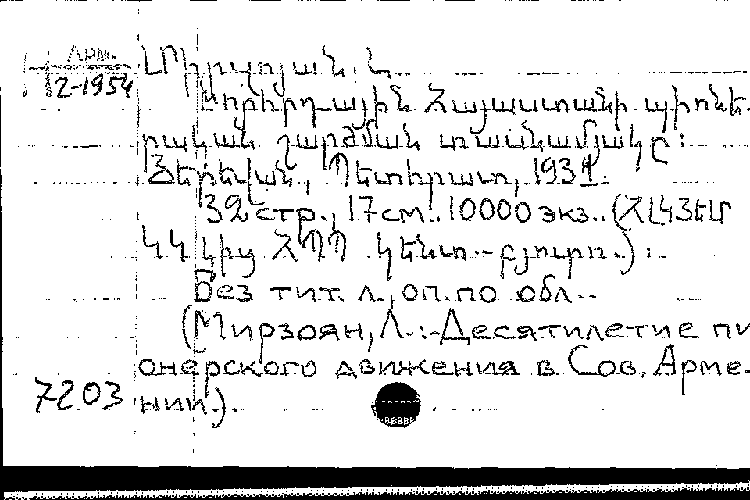 Арм.
2-1954
Միրզոյան, Լ.
Խորհրդային Հայաստանի պիոնե-
րական շարժման տասնամյակը:
Յերեվան, Պետհրատ, 1931.
32 стр., 17 см. 10000 экз. (ՀԼԿՅԵՄ
ԿԿ կից ՀՊՊ կենտ.-բյուրո.):
Без тит. л., оп. по обл.
(Мирзоян, Л.:-Десятилетие пи-
онерского движения в Сов. Арме-
нии.).
7203